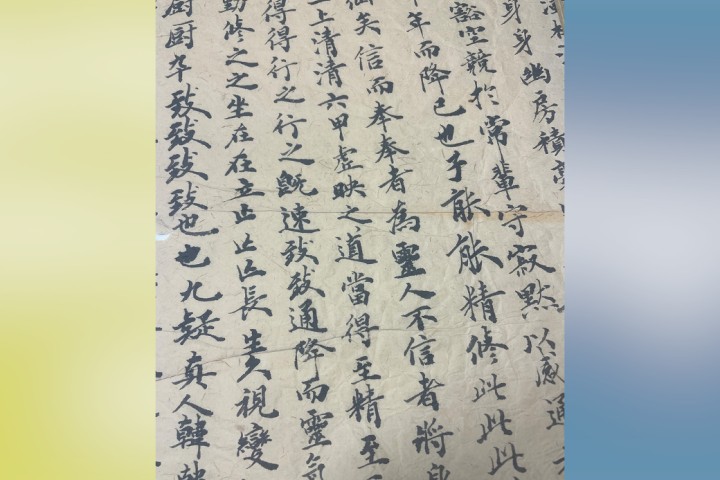 身身幽房積
豁空競於常輩守寂默以感通
年而降已也子能能精修此此此
仙矣信而奉奉者為靈人不信者將身
上清清六甲虛映之道當得至精至
得得行之行之既速致致通降而靈氣
勤修之之坐在在立止止區長生久視變
厨厨卒致致致致也也九疑真人韓